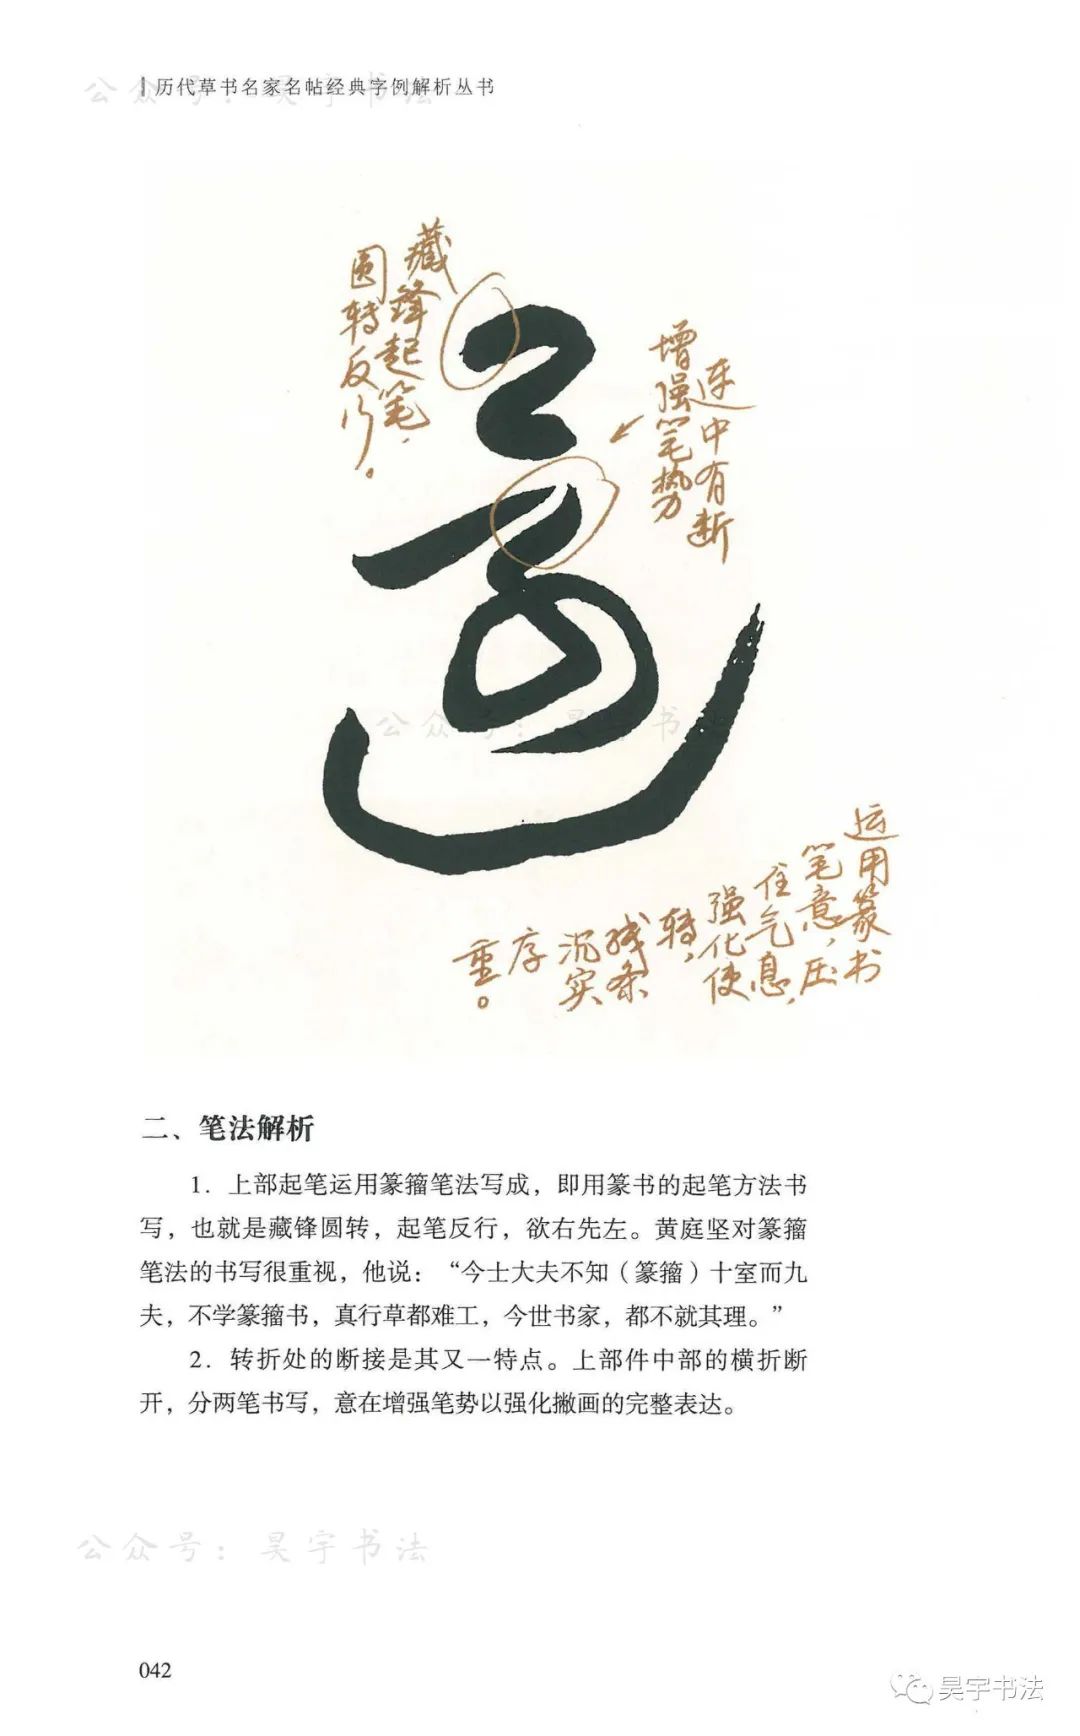 历代草书名家名帖经典字例解析丛书
公众号：昊宇书法
藏锋起笔，
圆转反行。
连中有断
增强笔势
公众号：昊宇书法
运用篆书
笔意，压
住气息，
强化使
转，
线条
沉实
厚
重。
二、笔法解析
1．上部起笔运用篆籀笔法写成，即用篆书的起笔方法书
写，也就是藏锋圆转，起笔反行，欲右先左。黄庭坚对篆籀
笔法的书写很重视，他说：“今士大夫不知（篆籀）十室而九
夫，不学篆籀书，真行草都难工，今世书家，都不就其理。”
2．转折处的断接是其又一特点。上部件中部的横折断
开，分两笔书写，意在增强笔势以强化撇画的完整表达。
公众号：昊宇书法
042
昊宇书法